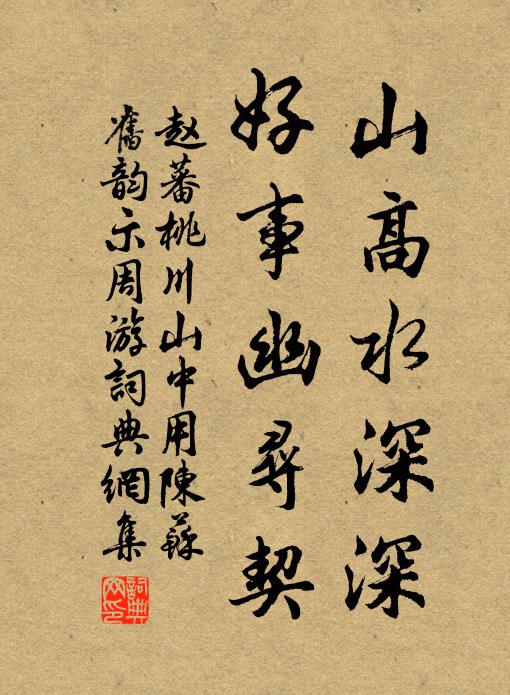 山高水深深
好事幽尋契
赵蕃桃川山中用陳蘇
舊韵示周游詞典網集
詞典网印